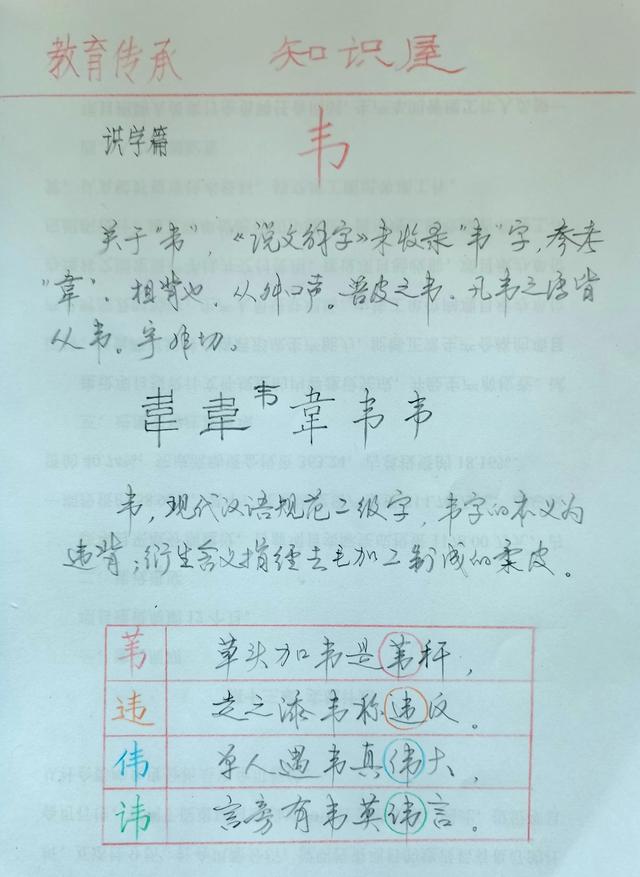 教育传承 知识屋
识字篇 韦
关于"韦"《说文解字》未收录"韦"字,参考
"韋"、相背也 从舛口声。兽皮之韦、凡韦之属皆
从韦。宇非切。
韋 韋 韦 韋 韦 韦
韦,现代汉语规范二级字,韦字的本义为
违背;衍生含义指经去毛加工制成的柔皮。
苇 草头加韦是苇秆,
违 走之添韦称违反。
伟 单人遇韦真伟大,
讳 言旁有韦莫讳言。